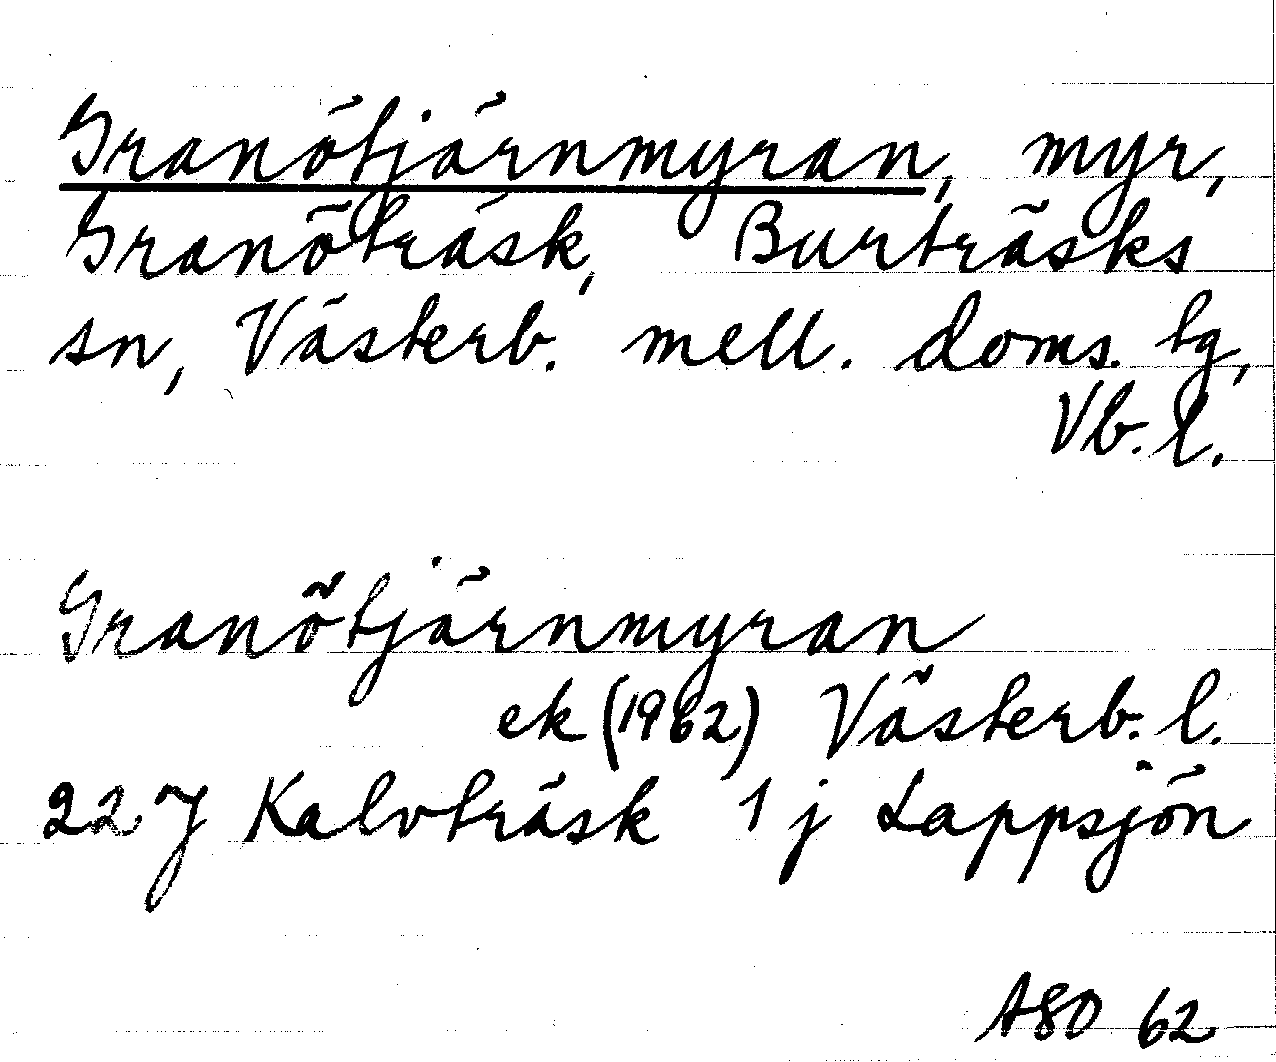 Granötjärnmyran, myr,
Granöträsk, Burträsks
sn, Västerb. mell. doms. tg,
Vb. l.
Granötjärnmyran
ek (1962) Västerb. l.
22 J Kalvträsk 1 j Lappsjön
ASO 62